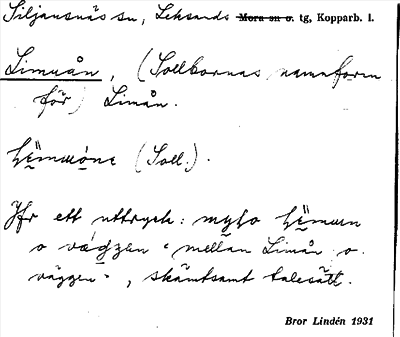 Siljansnäs sn, Leksands Mora sn o. tg, Kopparb. l.
Limuån, (Sollbornas namnform
för) Limån.
(Soll.).
Jfr ett uttryck: mylo
o väggen "mellan Limån o.
väggen", skämtsamt talesätt.
Bror Lindén 1931